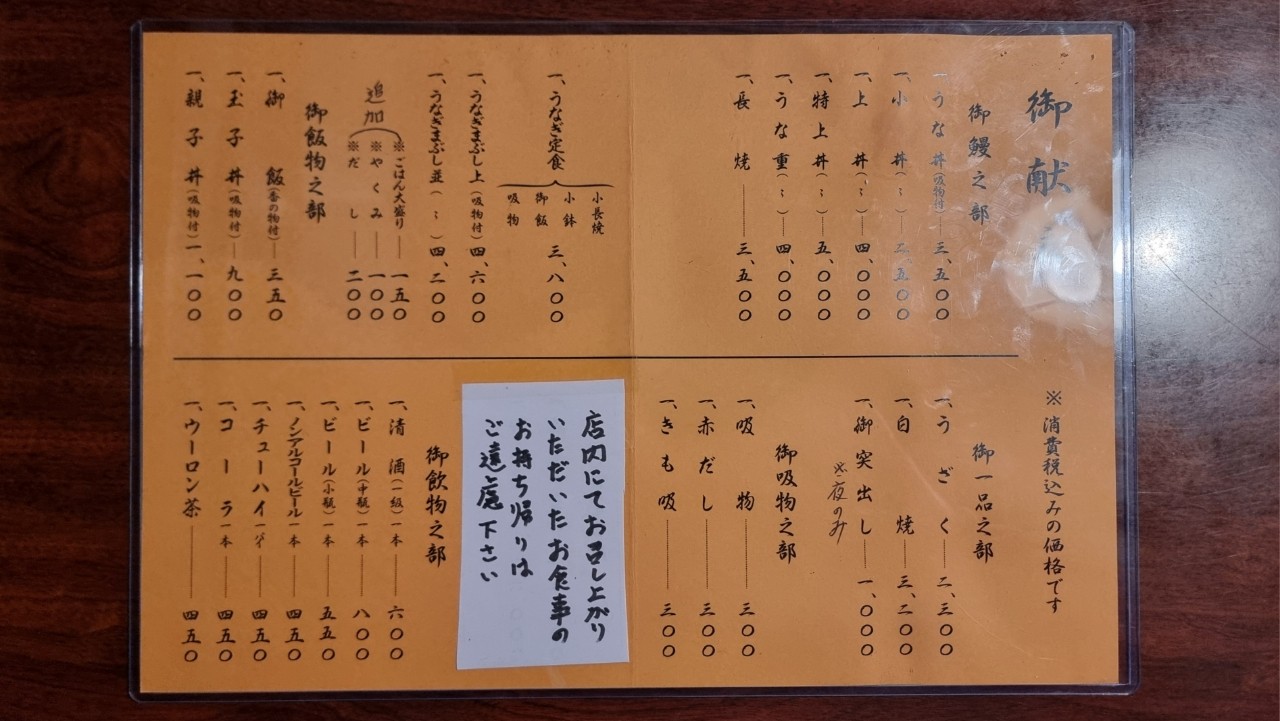 御献
御鰻之部
一、うな丼(吸物付)三、五〇〇
一、小丼(〃)二、五〇〇
一、上丼(〃)四、〇〇〇
一、特上丼(〃)五、〇〇〇
一、うな重(〃)四、〇〇〇
一、長焼 三、五〇〇
一、うなぎ定食
小長焼
小鉢
御飯
吸物
三、八〇〇
一、うなぎまぶし上(吸物付)四、六〇〇
一、うなぎまぶし並(〃)四、二〇〇
追加
※ごはん大盛り 一五〇
※やくみ 一〇〇
※だし 二〇〇
御飯物之部
一、御飯(香の物付)三五〇
一、玉子丼(吸物付)九〇〇
一、親子丼(吸物付)一、一〇〇
※消費税込みの価格です
御一品之部
一、うざく 二、三〇〇
一、白焼 三、二〇〇
一、御突出し 一、〇〇〇
※夜のみ
御吸物之部
一、吸物 三〇〇
一、赤だし 三〇〇
一、きも吸 三〇〇
店内にてお召し上がり
いただいたお食事の
お持ち帰りは
ご遠慮下さい
御飲物之部
一、清酒(一級)一本 六〇〇
一、ビール(中瓶)一本 八〇〇
一、ビール(小瓶)一本 五五〇
一、ノンアルコールビール一本 四五〇
一、チューハイ 四五〇
一、コーラ一本 四五〇
一、ウーロン茶 四五〇